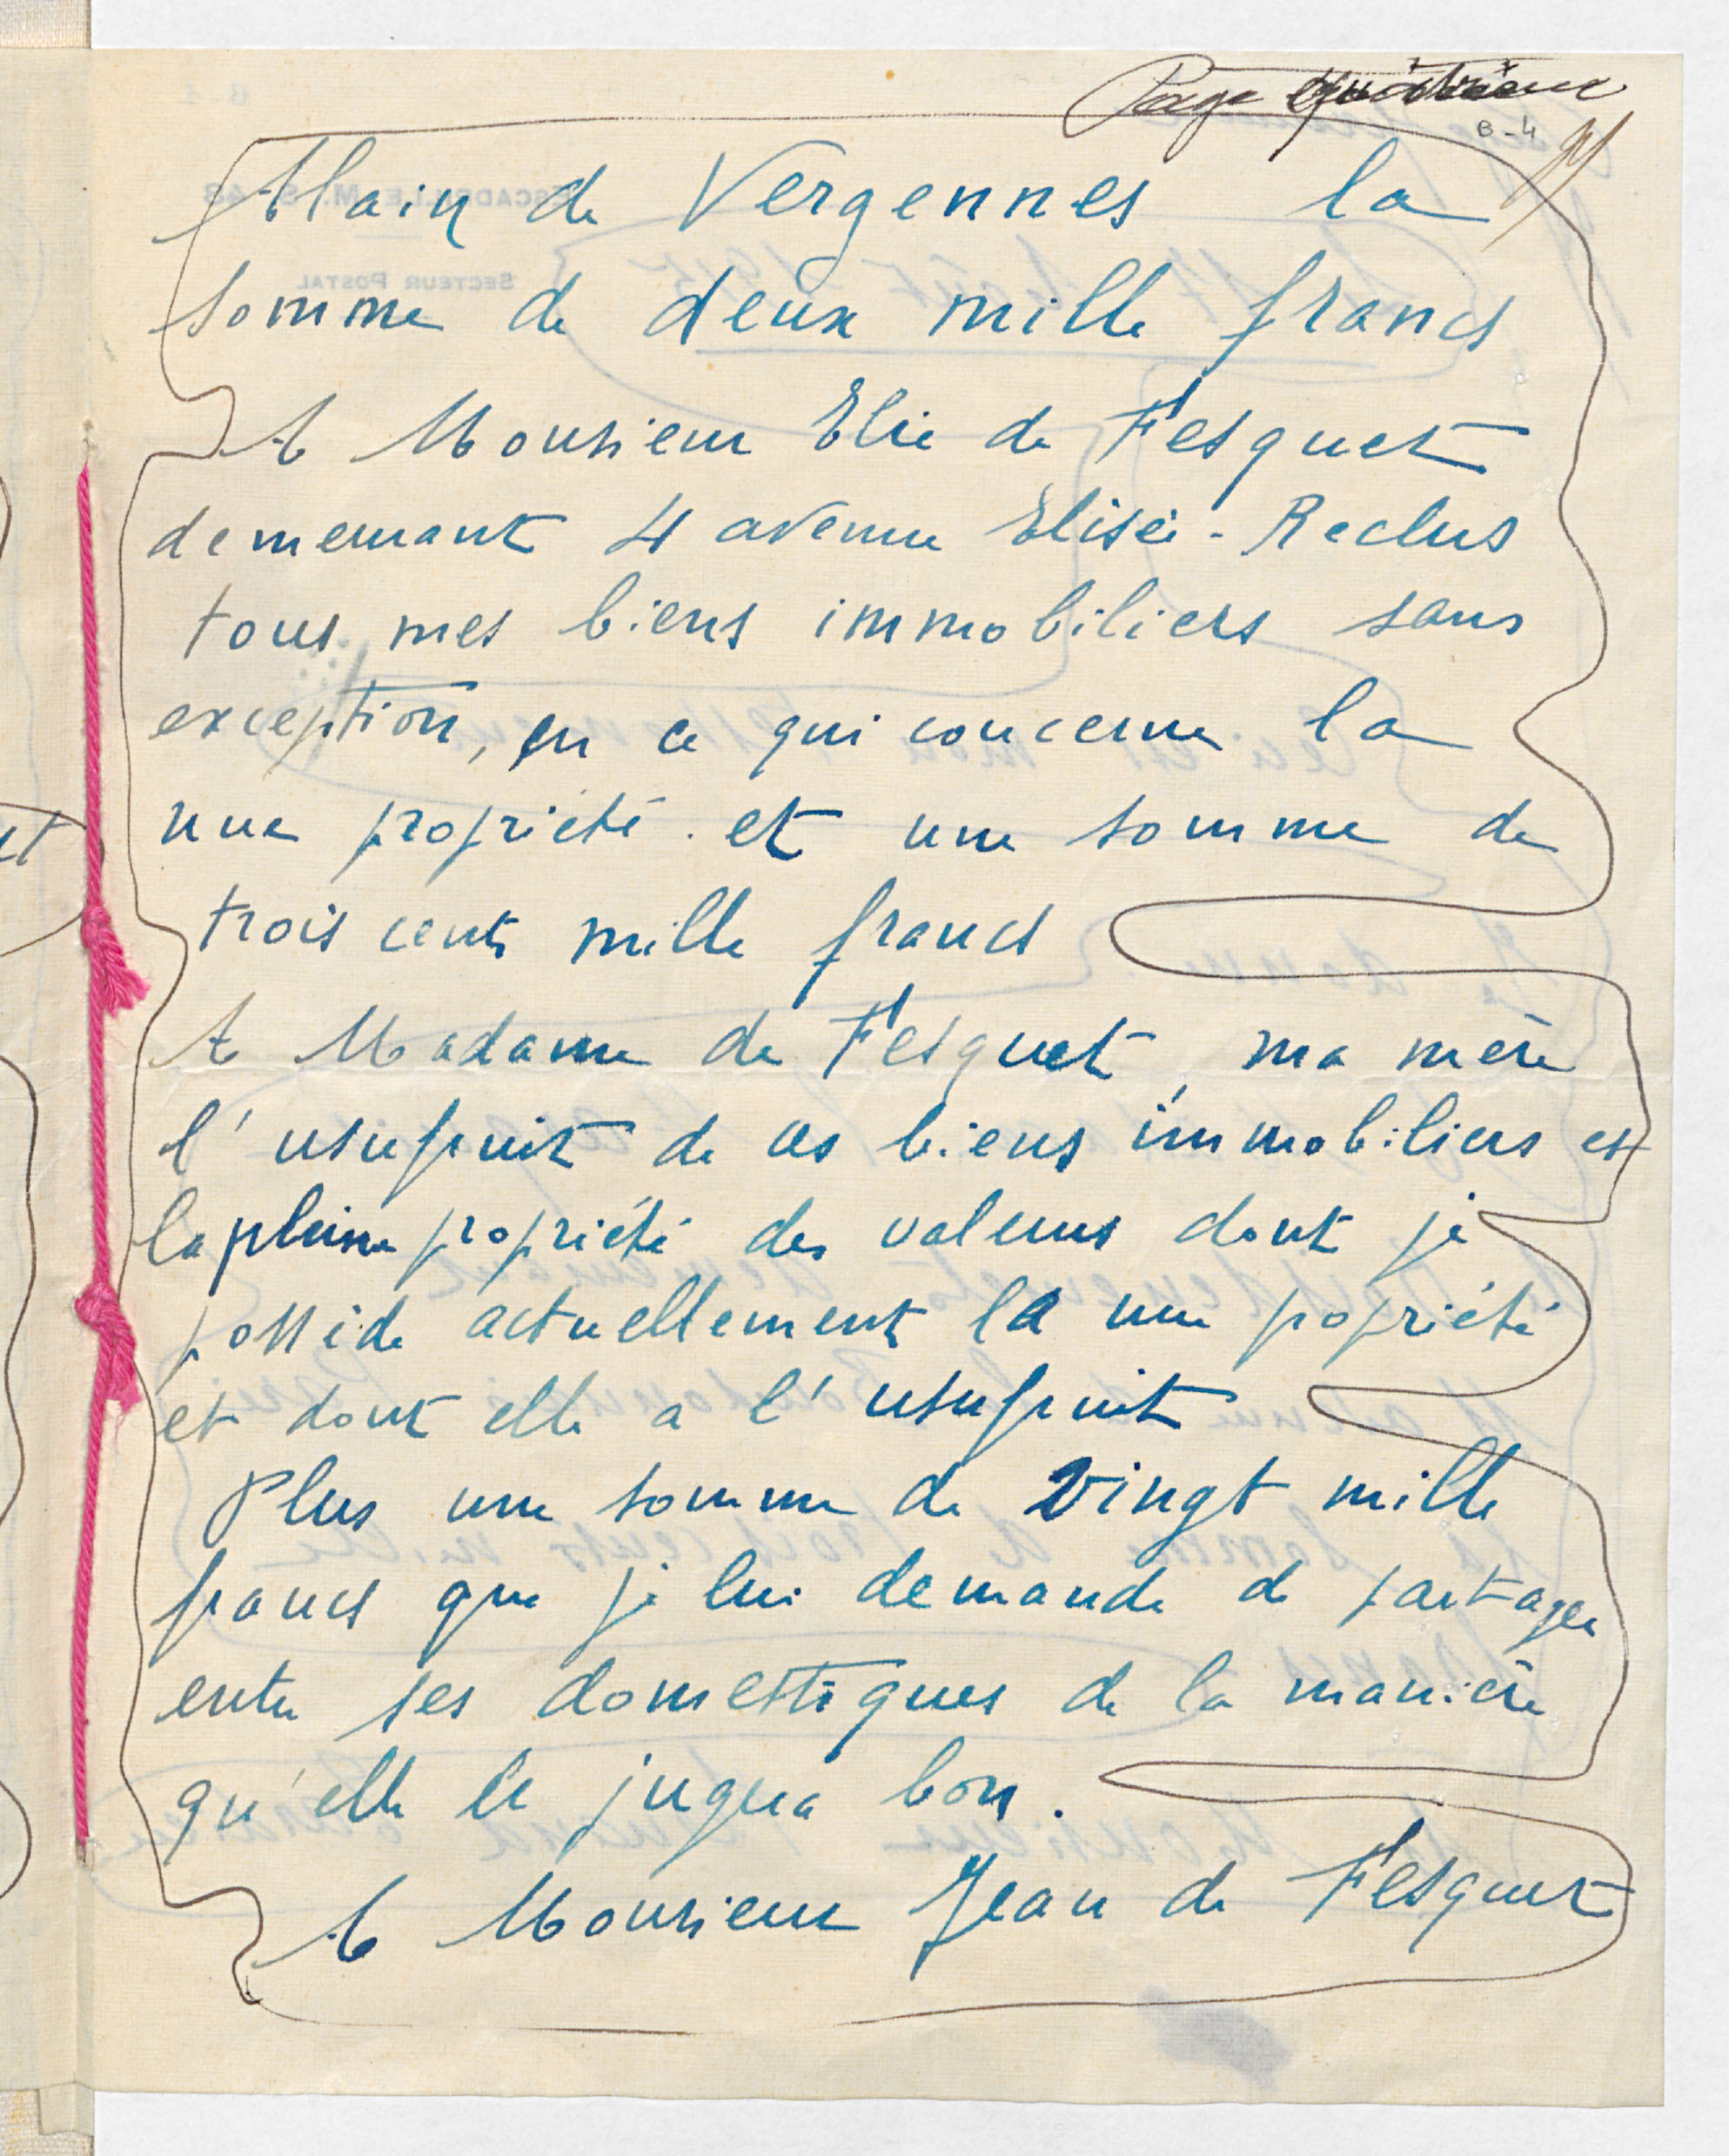 Page quatrième
B-4
Alain de Vergennes la
somme de deux mille francs
A Monsieur Elie de Fesquet
demeurant 4 avenue Elisée-Reclus
tous mes biens immobiliers sans
exception, en ce qui concerne la
nue propriété. et une somme de
trois cents mille francs
A Madame de Fesquet, ma mère
l'usufruit de ces biens immobiliers et
la pleine propriété des valeurs dont je
possède actuellement la nue popriété
et dont elle a l'usufruit
Plus une somme de vingt mille
francs que je lui demande de partager
entre ses domestiques de la manière
qu'elle le jugera bon.
A Monsieur Jean de Fesquet